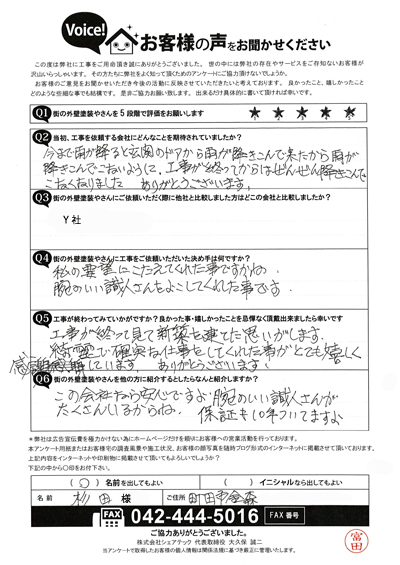 Voice!
お客様の声をお聞かせください
この度は弊社に工事をご用命頂き誠にありがとうございました。世の中には弊社の存在やサービスをご存知ないお客様が
沢山いらっしゃいます。その方たちに弊社をよく知って頂くためのアンケートにご協力頂けないでしょうか。
お客様のご意見をお聞かせいただき今後の活動に反映させていただきたいと考えております。良かったこと、嬉しかったこと
どのような些細な事でも結構です。是非ご協力お願い致します。出来るだけ具体的に書いて頂ければ幸いです。
Q1 街の外壁塗装やさんを5段階で評価をお願いします ★ ★ ★ ★ ★
Q2 当初、工事を依頼する会社にどんなことを期待されていましたか?
今まで雨が降ると玄関のドアから雨が降きこんで来たから雨が
降きこんでこないように、工事が終ってからはぜんぜん降きこんで
こなくなりました ありがとうございます。
Q3 街の外壁塗装やさんにご依頼いただく際に他社と比較しました方はどこの会社と比較しましたか?
Y社
Q4 街の外壁塗装やさんに工事をご依頼いただいた決め手は何ですか?
私の要望にこたえてくれた事ですかね。
腕のいい識人さんをよこしてくれた事です。
Q5 工事が終わってみていかがですか?良かった事・嬉しかったことを忌憚なく頂戴出来ましたら幸いです
工事が終って見て新築を建てた思いがします。
綺霊で確実な仕事をしてくれた事がとても嬉しく
感謝しています。ありがとうございます。
Q6 街の外壁塗装やさんを他の方に紹介するとしたらなんと紹介しますか?
この会社なら安心ですよ。腕のいい識人さんが
たくさんいるからね。 保証も10年ついてますよ
＊弊社は広告宣伝費を極力かけない為にホームページだけを頼りにお客様への営業活動を行っております。
本アンケート用紙またはお客様宅の調査風景や施工状況、お客様の顔写真を随時ブログ形式でのインターネットに掲載させて頂いております。
上記内容をインターネットや印刷物に掲載させて頂いてもよろしいでしょうか?
下記の中から○印をお付下さい。
( ○ ) 名前を出してもよい ( ) イニシャルなら出してもよい
名前 杉田 様 ご住所 町田市金森
FAX 042-444-5016 FAX番号
ご協力ありがとうございました。
株式会社シェアテック 代表取締役 大久保 誠二
当アンケートで取得したお客様の個人情報は関係法規に基づき厳正に管理いたします。
富田